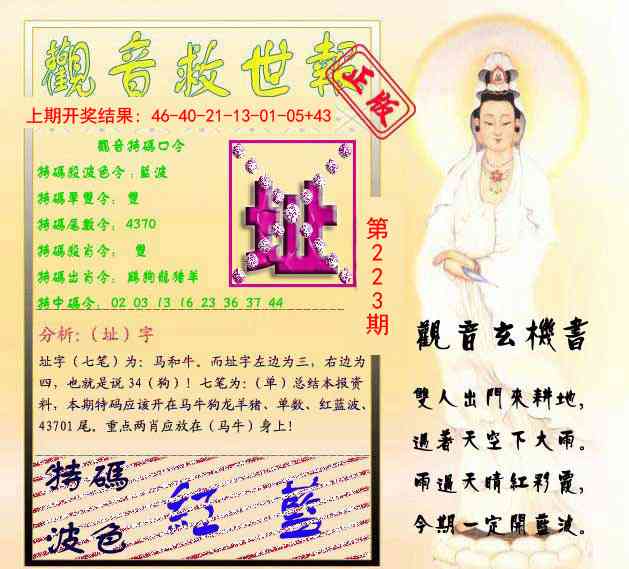 觀音救世報
正版
上期开奖结果：46-40-21-13-01-05+43
觀音特碼口令
特碼殺波色令：藍波
特碼單雙令： 雙
特碼尾數令： 4370
特碼殺肖令： 雙
特碼出肖令： 鷄狗龍豬羊
特中碼令： 02 03 13 16 23 36 37 44
址
第223期
分析:（址）字
址字（七笔）为：马和牛。而址字左边为三，右边为
四，也就是说 34（狗）！七笔为：（单）总结本报资
料，本期特码应该开在马牛狗龙羊猪、单数、红蓝波、
43701 尾。重点两肖应放在（马牛）身上！
特碼
波色
紅 藍
觀音玄機書
雙人出門來耕地，
過著天空下大雨。
雨過天晴紅彩霞，
今期一定開藍波。